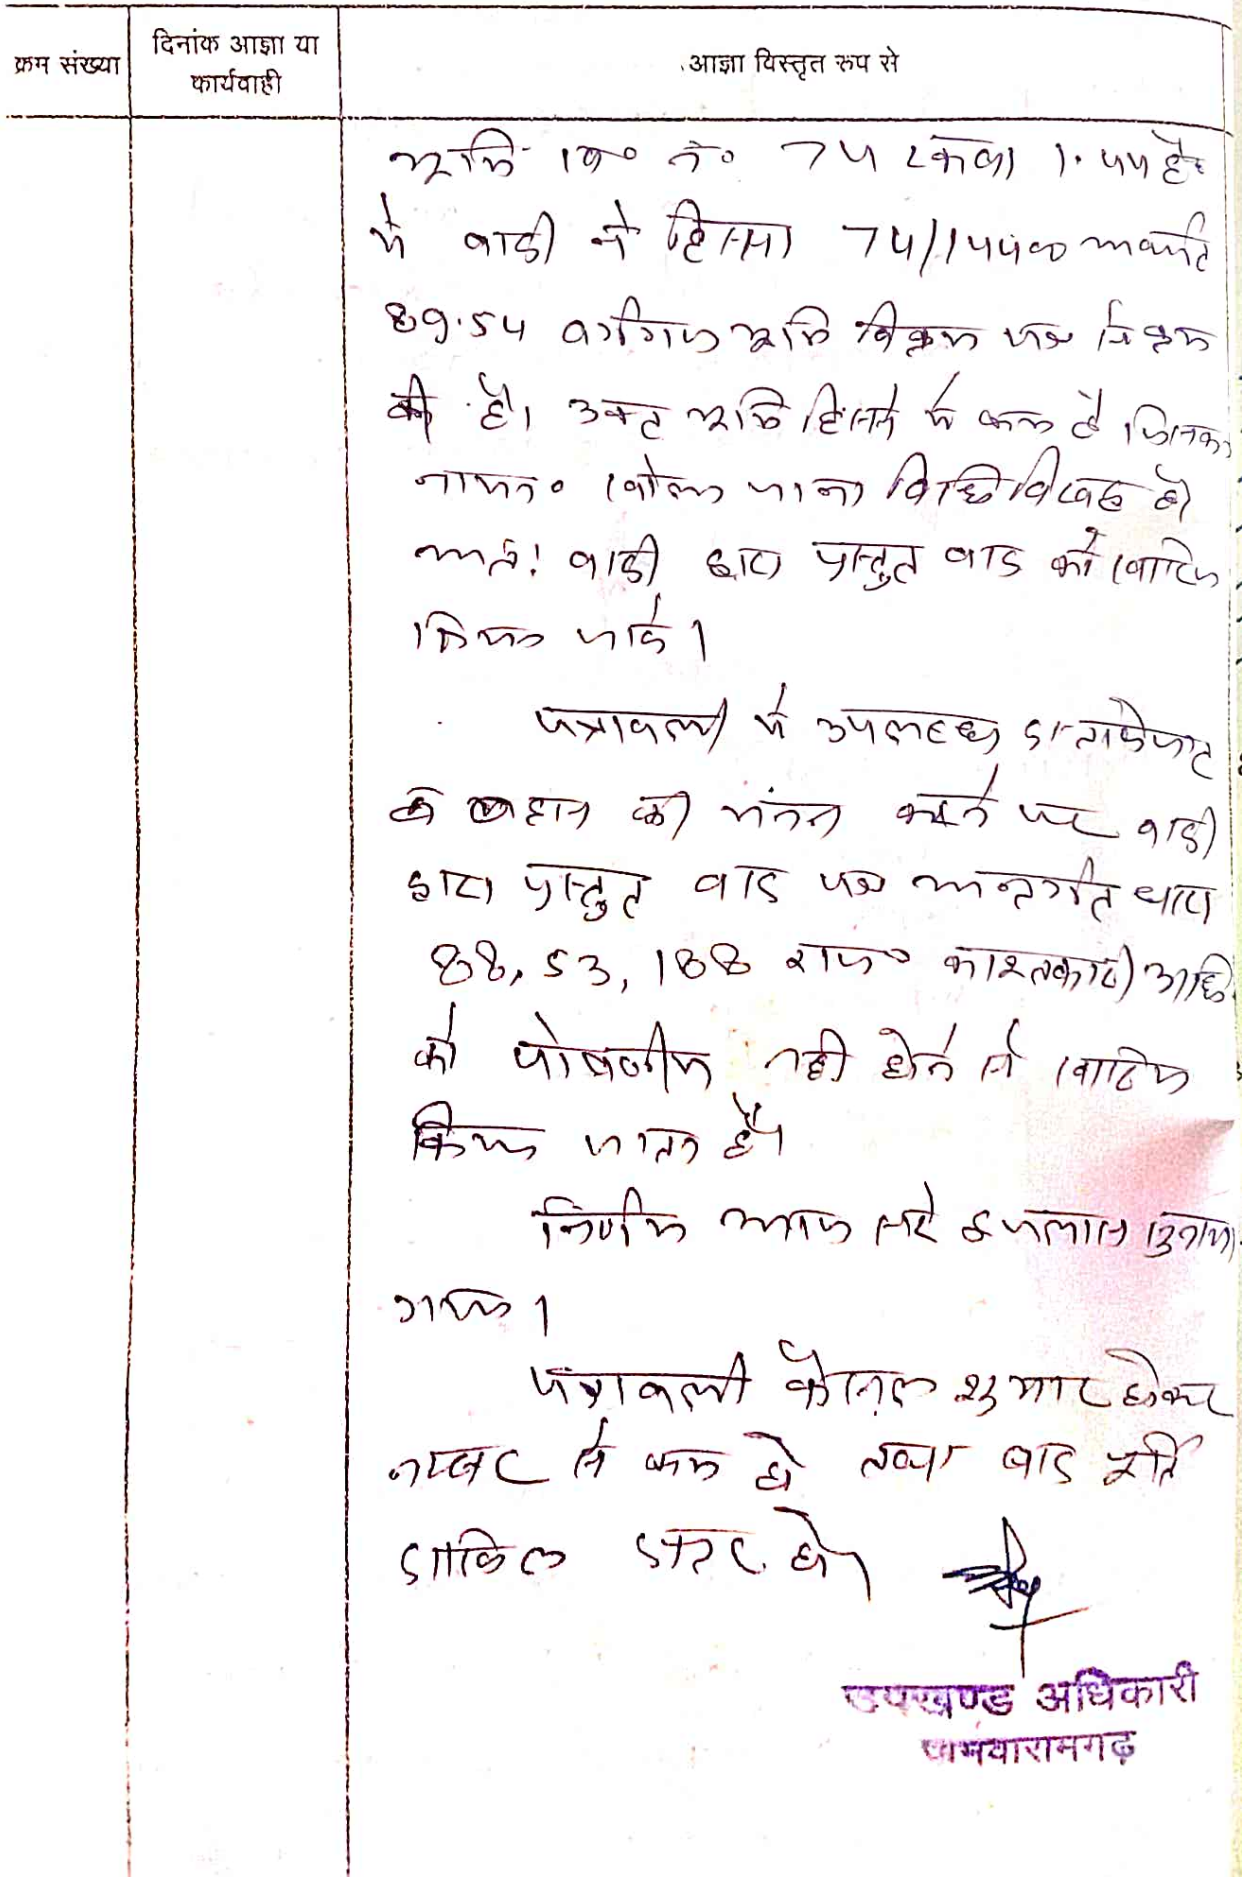 क्रम संख्या
दिनांक आज्ञा या
कार्यवाही
आज्ञा विस्तृत रूप से
भूमि ख० नं० 74 रकबा 1.44 है०
में वादी ने हिस्सा 74/14400 अर्थात
89.54 वर्गगज भूमि विक्रय पत्र से क्रय
की है। उक्त भूमि हिस्से में कम है जिसका
नामा० खोला जाना विधि विरुद्ध है।
अतः वादी द्वारा प्रस्तुत वाद को खारिज
किया जावे।
पत्रावली में उपलब्ध दस्तावेजात
व बहस की मनन करने पर वादी
द्वारा प्रस्तुत वाद पत्र अन्तर्गत धारा
88, 53, 188 राज० काश्तकारी अधि.
को पोषणीय नही होने से खारिज
किया जाता है।
निर्णय आज सरे इजलास सुनाया
गया।
पत्रावली फैसल शुमार होकर
नम्बर से कम हो तथा बाद पूर्ति
दाखिल दफ्तर हो।
उपखण्ड अधिकारी
जमवारामगढ़